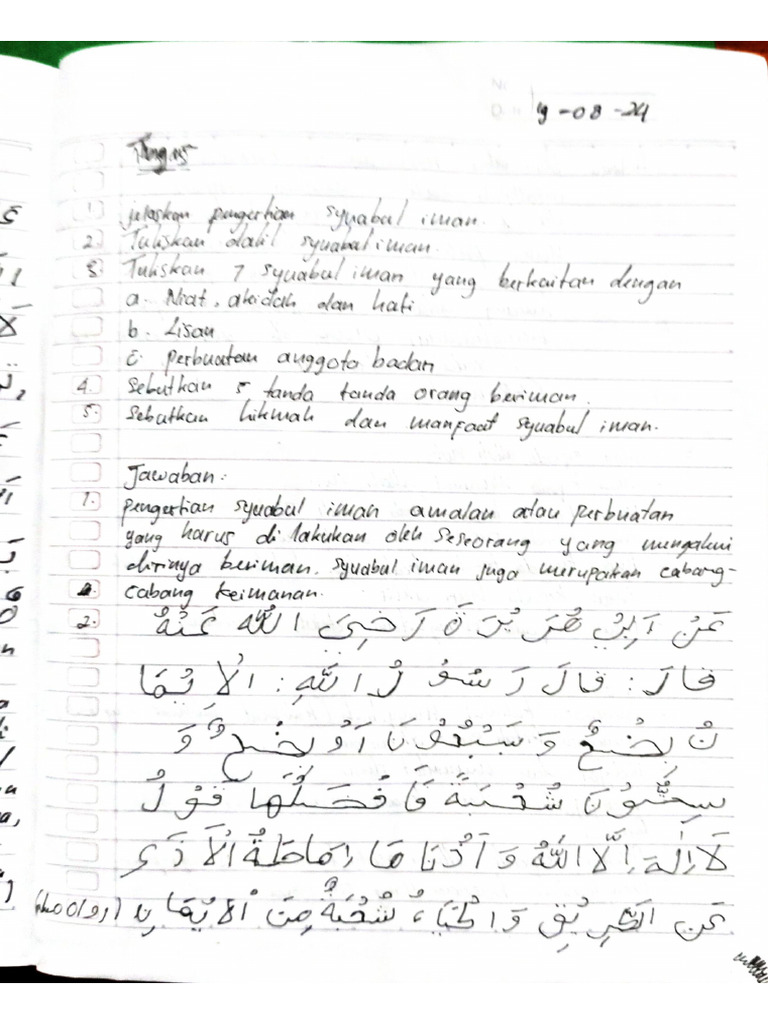 19-08-24
Tugas
1. jelaskan pengertian syuabul iman.
2. Tuliskan dalil syuabul iman.
3. Tuliskan 7 syuabul iman yang berkaitan dengan
a. Niat, akidah dan hati
b. Lisan
c. perbuatan anggota badan
4. Sebutkan 5 tanda tanda orang beriman.
5. Sebutkan hikmah dan manfaat syuabul iman.
Jawaban:
1. pengertian syuabul iman amalan atau perbuatan
yang harus di lakukan oleh seseorang yang mengakui
dirinya beriman. syuabul iman juga merupakan cabang-
cabang keimanan.
2. عَنْ اَبِيْ هُرَيْرَةَ رَضِيَ اللّٰهُ عَنْهُ
قَالَ: قَالَ رَسُوْلُ اللّٰهِ: الْاِيْمَا
نُ بِضْعٌ وَسَبْعُوْنَ اَوْ بِضْعٌ وَ
سِتُّوْنَ شُعْبَةً فَأَفْضَلُهَا قَوْلُ
لَااِلٰهَ اِلَّا اللّٰهُ وَاَدْنَا هَا اِمَاطَةُ الْأَذَى
عَنِ الطَّرِيْقِ وَالْحَيَاءُ شُعْبَةٌ مِنَ الْاِيْمَانِ (رواه مسلم)